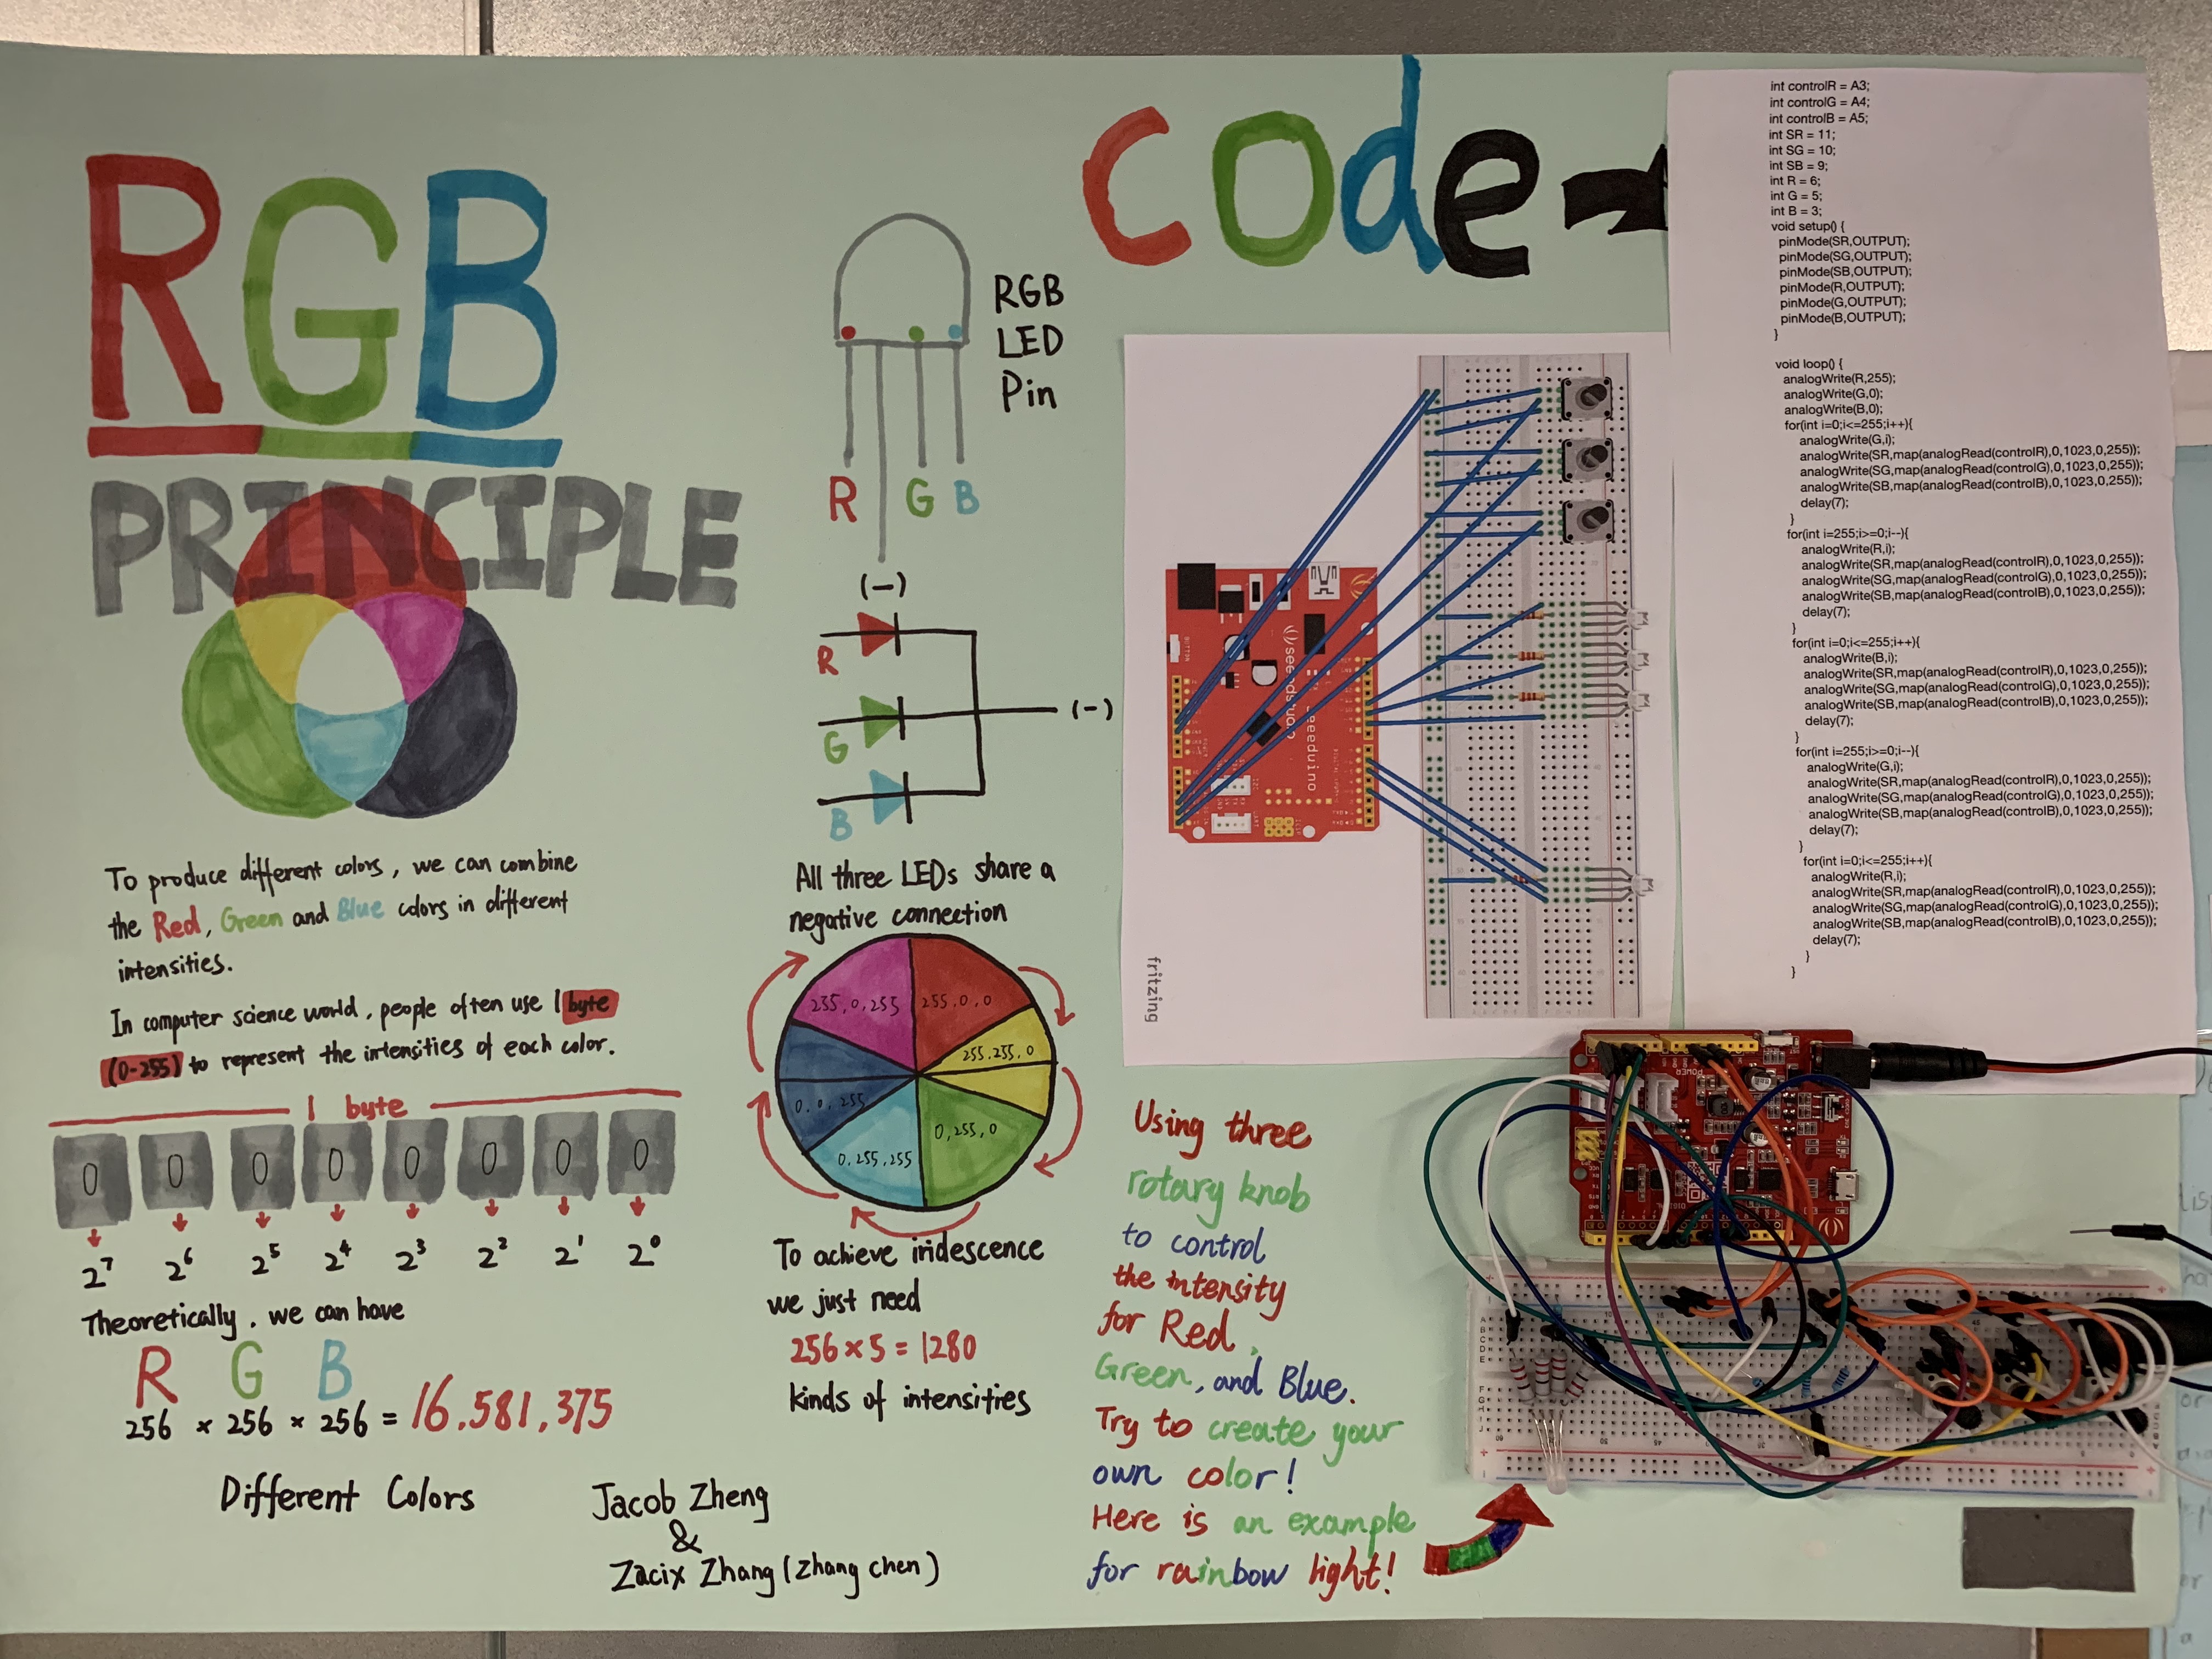 RGB
PRINCIPLE
To produce different colors, we can combine
the Red, Green and Blue colors in different
intensities.
In computer science world, people often use 1 byte
(0-255) to represent the intensities of each color.
1 byte
0 0 0 0 0 0 0 0
2⁷ 2⁶ 2⁵ 2⁴ 2³ 2² 2¹ 2⁰
Theoretically, we can have
R G B
256 × 256 × 256 = 16.581,375
Different Colors
Jacob Zheng
&
Zacix Zhang (Zhang chen)
RGB
LED
Pin
R G B
(-)
R
G
B
(-)
All three LEDs share a
negative connection
255,0,255
255.0.0
255.255.0
0.0.255
0,255,0
0.255,255
To achieve iridescence
we just need
256×5=1280
kinds of intensities
Code
fritzing
seeedstudio
seeeduino
Using three
rotary knob
to control
the intensity
for Red,
Green, and Blue.
Try to create your
own color!
Here is an example
for rainbow light!
int controlR = A3;
int controlG = A4;
int controlB = A5;
int SR = 11;
int SG = 10;
int SB = 9;
int R = 6;
int G = 5;
int B = 3;
void setup() {
pinMode(SR,OUTPUT);
pinMode(SG,OUTPUT);
pinMode(SB,OUTPUT);
pinMode(R,OUTPUT);
pinMode(G,OUTPUT);
pinMode(B,OUTPUT);
}
void loop() {
analogWrite(R,255);
analogWrite(G,0);
analogWrite(B,0);
for(int i=0;i<=255;i++){
analogWrite(G,i);
analogWrite(SR,map(analogRead(controlR),0,1023,0,255));
analogWrite(SG,map(analogRead(controlG),0,1023,0,255));
analogWrite(SB,map(analogRead(controlB),0,1023,0,255));
delay(7);
}
for(int i=255;i>=0;i--){
analogWrite(R,i);
analogWrite(SR,map(analogRead(controlR),0,1023,0,255));
analogWrite(SG,map(analogRead(controlG),0,1023,0,255));
analogWrite(SB,map(analogRead(controlB),0,1023,0,255));
delay(7);
}
for(int i=0;i<=255;i++){
analogWrite(B,i);
analogWrite(SR,map(analogRead(controlR),0,1023,0,255));
analogWrite(SG,map(analogRead(controlG),0,1023,0,255));
analogWrite(SB,map(analogRead(controlB),0,1023,0,255));
delay(7);
}
for(int i=255;i>=0;i--){
analogWrite(G,i);
analogWrite(SR,map(analogRead(controlR),0,1023,0,255));
analogWrite(SG,map(analogRead(controlG),0,1023,0,255));
analogWrite(SB,map(analogRead(controlB),0,1023,0,255));
delay(7);
}
for(int i=0;i<=255;i++){
analogWrite(R,i);
analogWrite(SR,map(analogRead(controlR),0,1023,0,255));
analogWrite(SG,map(analogRead(controlG),0,1023,0,255));
analogWrite(SB,map(analogRead(controlB),0,1023,0,255));
delay(7);
}
}
POWER